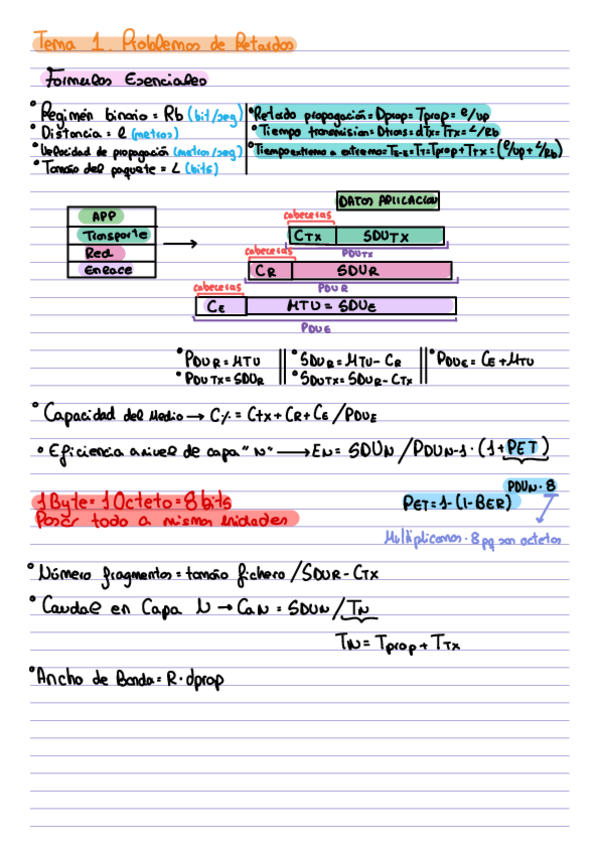 Tema 1. Problemas de Retardos
Formulas Esenciales
• Regimén binario = Rb (bit/seg)
• Distancia = l (metros)
• Velocidad de propagación (metros/seg)
• Tamaño del paquete = L (bits)
• Retado propagación = Dprop = Tprop = e/vp
• Tiempo transmision = Dtrans = dTx = TTx = L/Rb
• Tiempo extremo a extremo = TE-E = TT = Tprop + TTx = (e/vp + L/Rb)
DATOS APLICACION
APP
Transporte
Red
Enlace
cabeceras
CTX SDUTX
PDUTX
cabeceras
CR SDUR
PDUR
cabeceras
CE MTU = SDUE
PDUE
• PDUR = MTU || • SDUR = MTU - CR || • PDUE = CE + MTU
• PDUTX = SDUR || • SDUTX = SDUR - CTX ||
• Capacidad del Medio → C% = CTX + CR + CE / PDUE
• Eficiencia a nivel de capa "N" → EN = SDUN / PDUN-1 · (1 + PET)
1 Byte = 1 Octeto = 8 bits
Pasar todo a mismas unidades
PET = 1 - (1 - BER) PDUN · 8
Multiplicamos · 8 pq son octetos
• Número fragmentos = tamaño fichero / SDUR - CTX
• Caudal en Capa N → CaN = SDUN / TN
TN = Tprop + TTX
• Ancho de Banda = R · dprop